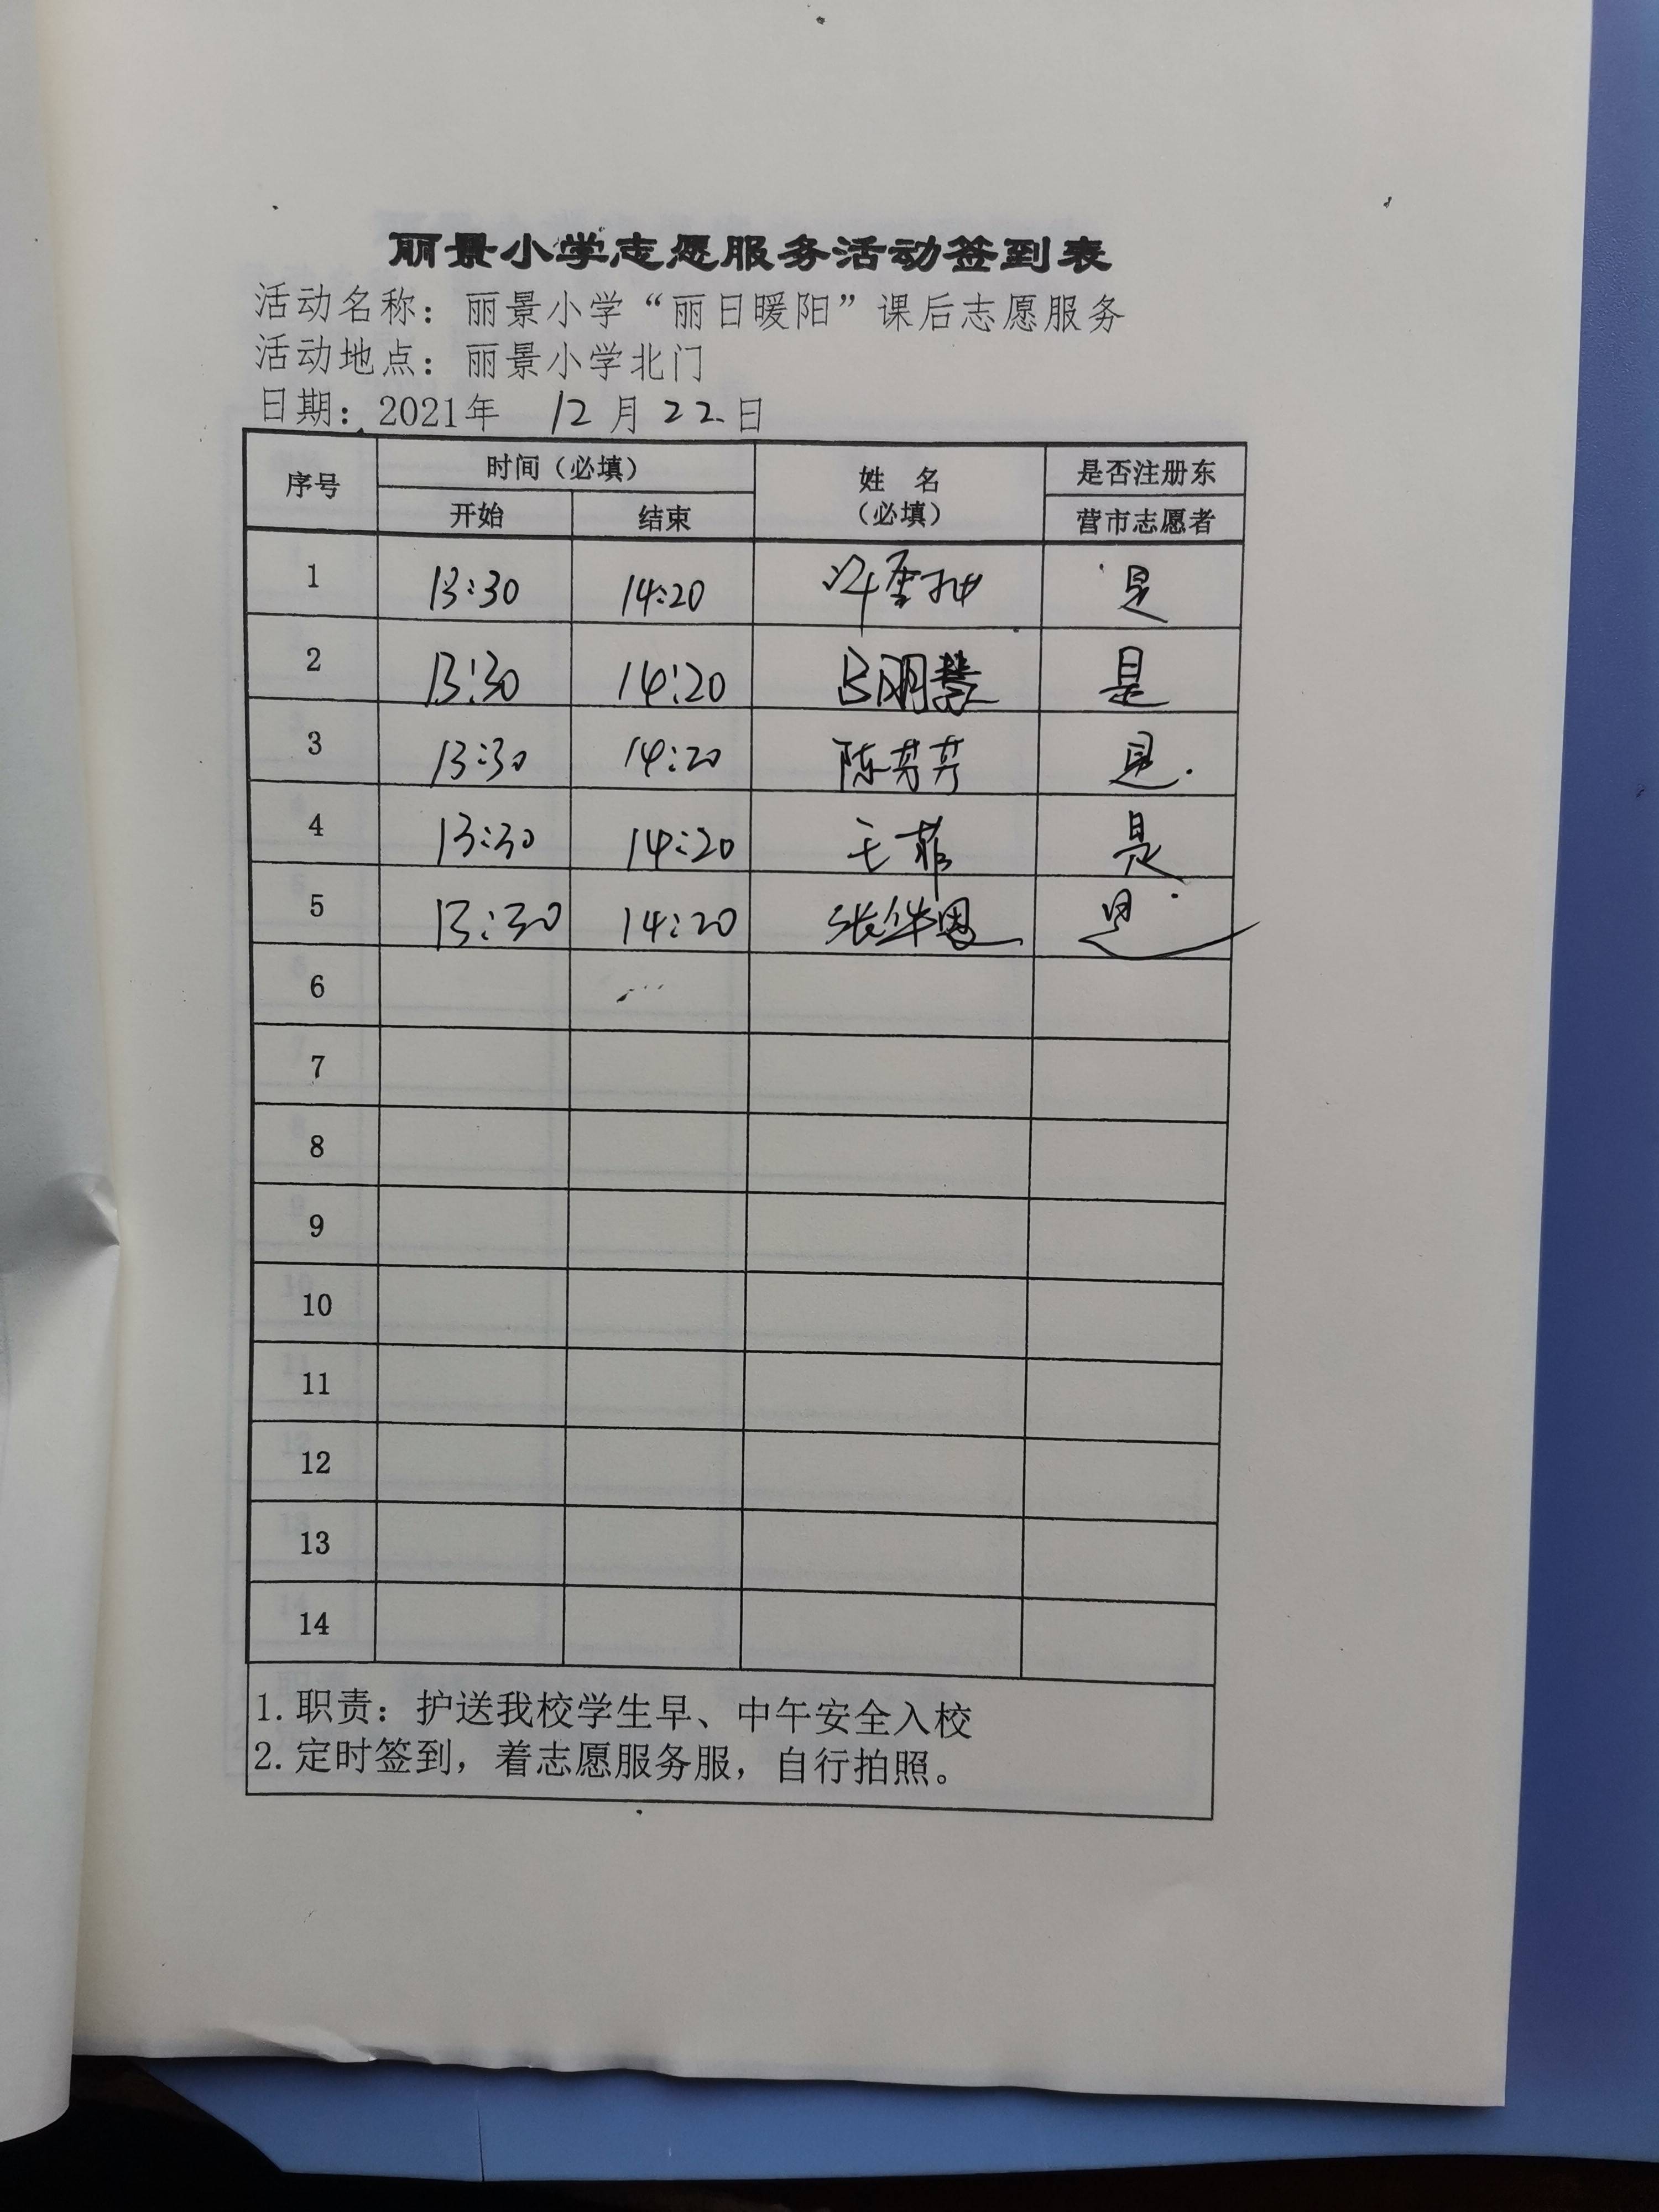 丽景小学志愿服务活动签到表
活动名称：丽景小学“丽日暖阳”课后志愿服务
活动地点：丽景小学北门
日期：2021年 12月22日
序号 时间（必填） 姓 名（必填） 是否注册东营市志愿者
开始 结束
1 13:30 14:20 是
2 13:30 14:20 吕明慧 是
3 13:30 14:20 陈芳芳 是
4 13:30 14:20 王菲 是
5 13:30 14:20 张华恩 是
6
7
8
9
10
11
12
13
14
1.职责：护送我校学生早、中午安全入校
2.定时签到，着志愿服务服，自行拍照。